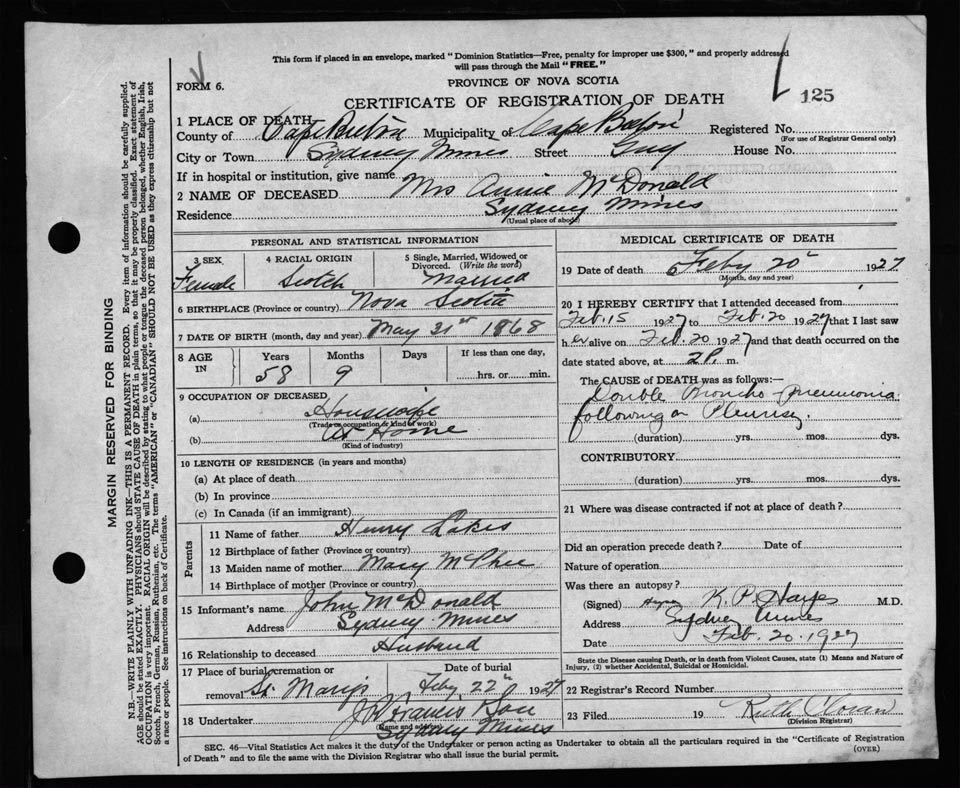 This form if placed in an envelope, marked "Dominion Statistics—Free, penalty for improper use $300," and properly addressed
will pass through the Mail "FREE."
FORM 6.
PROVINCE OF NOVA SCOTIA
CERTIFICATE OF REGISTRATION OF DEATH
125
1 PLACE OF DEATH
County of Cape Breton Municipality of Cape Breton Registered No.
(For use of Registrar General only)
City or Town Sydney Mines Street House No.
If in hospital or institution, give name
2 NAME OF DECEASED Mrs Annie McDonald
Residence Sydney Mines
(Usual place of abode)
PERSONAL AND STATISTICAL INFORMATION
3 SEX Female
4 RACIAL ORIGIN Scotch
5 Single, Married, Widowed or Divorced. (Write the word) Married
6 BIRTHPLACE (Province or country) Nova Scotia
7 DATE OF BIRTH (month, day and year) May 21st 1868
8 AGE IN Years Months Days If less than one day,
58 9 hrs. or min.
9 OCCUPATION OF DECEASED
(a) Housewife
(Trade or occupation or kind of work)
(b) At Home
(Kind of industry)
10 LENGTH OF RESIDENCE (in years and months)
(a) At place of death
(b) In province
(c) In Canada (if an immigrant)
Parents
11 Name of father Henry
12 Birthplace of father (Province or country)
13 Maiden name of mother Mary McPhee
14 Birthplace of mother (Province or country)
15 Informant's name John McDonald
Address Sydney Mines
16 Relationship to deceased Husband
17 Place of burial, cremation or removal St. Mary's
Date of burial Feby 22nd 1927
18 Undertaker J Francis
(Name and address)
Sydney Mines
MEDICAL CERTIFICATE OF DEATH
19 Date of death Feby 20th 1927
(Month, day and year)
20 I HEREBY CERTIFY that I attended deceased from
Feb. 15 1927 to Feb. 20 1927 that I last saw
her alive on Feb. 20 1927 and that death occurred on the
date stated above, at 2 P. m.
The CAUSE OF DEATH was as follows:—
Double Broncho-pneumonia
following on Pleurisy.
(duration) yrs. mos. dys.
CONTRIBUTORY
(duration) yrs. mos. dys.
21 Where was disease contracted if not at place of death?
Did an operation precede death? Date of
Nature of operation
Was there an autopsy?
(Signed) K. P. Hayes M.D.
Address Sydney Mines
Date Feb. 20. 1927
State the Disease causing Death, or in death from Violent Causes, state (1) Means and Nature of
Injury, (2) whether Accidental, Suicidal or Homicidal.
22 Registrar's Record Number
23 Filed 19 Ruth
(Division Registrar)
SEC. 46—Vital Statistics Act makes it the duty of the Undertaker or person acting as Undertaker to obtain all the particulars required in the "Certificate of Registration
of Death" and to file the same with the Division Registrar who shall issue the burial permit.
(OVER)
MARGIN RESERVED FOR BINDING
N.B. WRITE PLAINLY WITH UNFADING INK—THIS IS A PERMANENT RECORD. Every item of information should be carefully supplied.
AGE should be stated EXACTLY. PHYSICIANS should STATE CAUSE OF DEATH in plain terms, so that it may be properly classified. Exact statement of
OCCUPATION is very important. RACIAL ORIGIN will be described by stating to what people or tongue the deceased person belonged, whether English, Irish,
Scotch, French, German, Russian, Ruthenian, etc. The terms "AMERICAN" or "CANADIAN" SHOULD NOT BE USED as they express citizenship but not
a race or people. See instructions on back of Certificate.